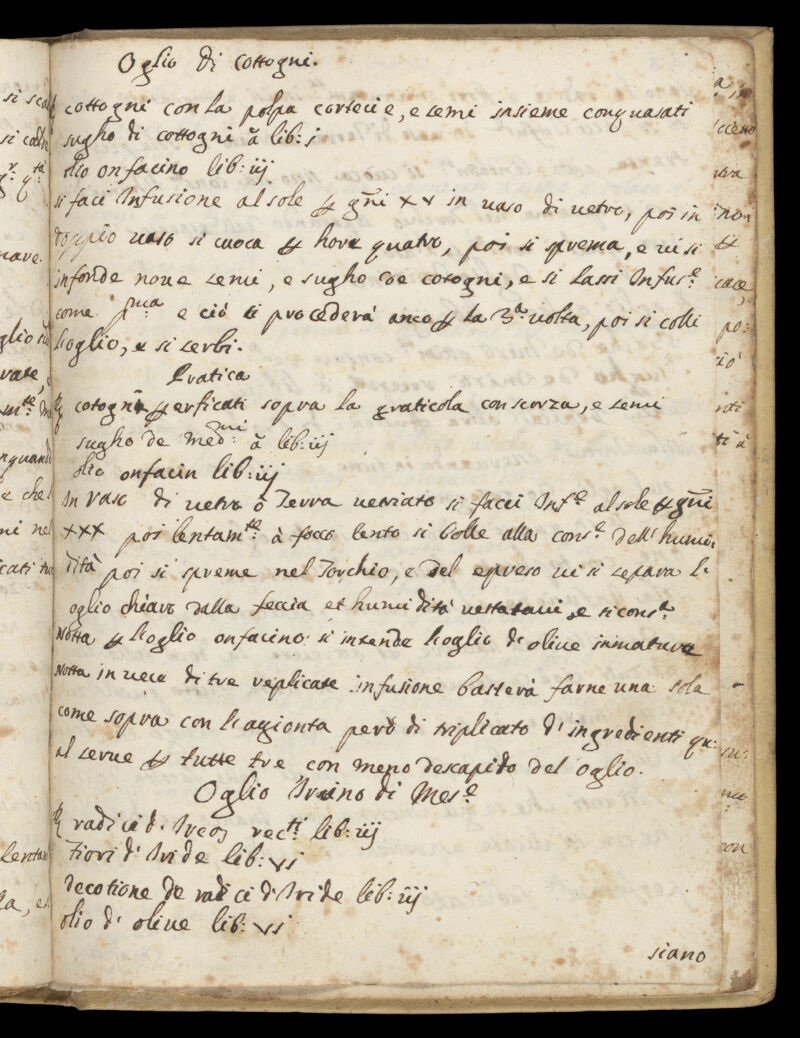 Oglio di cottogni.
cottogni con la polpa cortecie, e semi insieme conquasati
sugho di cottogni ā lib: j
olio onfacino lib: iij
si faci Infusione al sole ꝑ gñi xx in uaso di uetro, poi in
doppio uaso si cuoca ꝑ hore quatro, poi si sprema, e ui si
infonde noue semi, e sugho de cotogni, e si lassi Infus.e
come pma e ciò si procederà anco ꝑ la 3a uolta, poi si colli
l'oglio, e si serbi.
Pratica
℞ cotogni ꝑerficati sopra la graticola con scorza, e semi
sugho de medmi ā lib: iij
olio onfacin lib: iij
In vaso di uetro ò Terra uetriato si facci Inf.e al sole ꝑ gñi
xxx poi lentamte à foco lento si bolle alla cons.e dell' humi:
dità poi si spreme nel Torchio, e del epreso ui si separa l'
oglio chiaro dalla feccia et humidità restataui, e si cons.a
Notta ꝑ l'oglio onfacino si intende l'oglio d'oliue inmature
Notta in uece di tre replicate infusione basterà farne una sola
come sopra con l'agionta però di triplicato d'ingredienti qu:
al serue ꝑ tutte tre con meno descapido del oglio.
Oglio Irino di Mes.e
℞ radici d'Ireos recti lib: iij
Fiori d'Iride lib: vi
decotione de radici d'Iride lib: iij
olio d'oliue lib: vi
siano